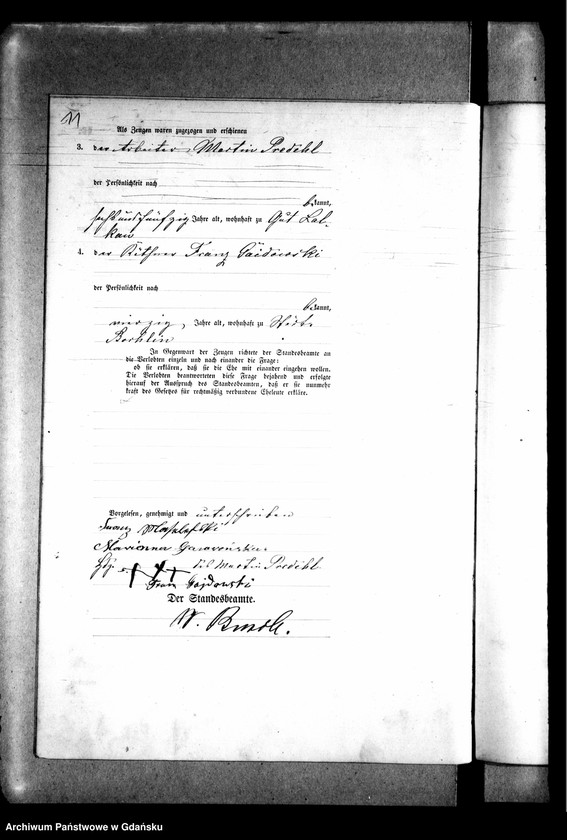 11
Als Zeugen waren zugezogen und erschienen
3. der Arbeiter Martin Predehl
der Persönlichkeit nach
bekannt,
sechsundfünfzig Jahre alt, wohnhaft zu Gut Lal-
kau
4. der Käthner Franz Gaidowski
der Persönlichkeit nach
bekannt,
vierzig, Jahre alt, wohnhaft zu
Bochlin
In Gegenwart der Zeugen richtete der Standesbeamte an
die Verlobten einzeln und nach einander die Frage:
ob sie erklären, daß sie die Ehe mit einander eingehen wollen.
Die Verlobten beantworteten diese Frage bejahend und erfolgte
hierauf der Ausspruch des Standesbeamten, daß er sie nunmehr
kraft des Gesetzes für rechtmäßig verbundene Eheleute erkläre.
Vorgelesen, genehmigt und unterschrieben
Franz
Marianna
+++ des Martin Predehl
Franz Gajdowski
Der Standesbeamte.
W.
Archiwum Państwowe w Gdańsku